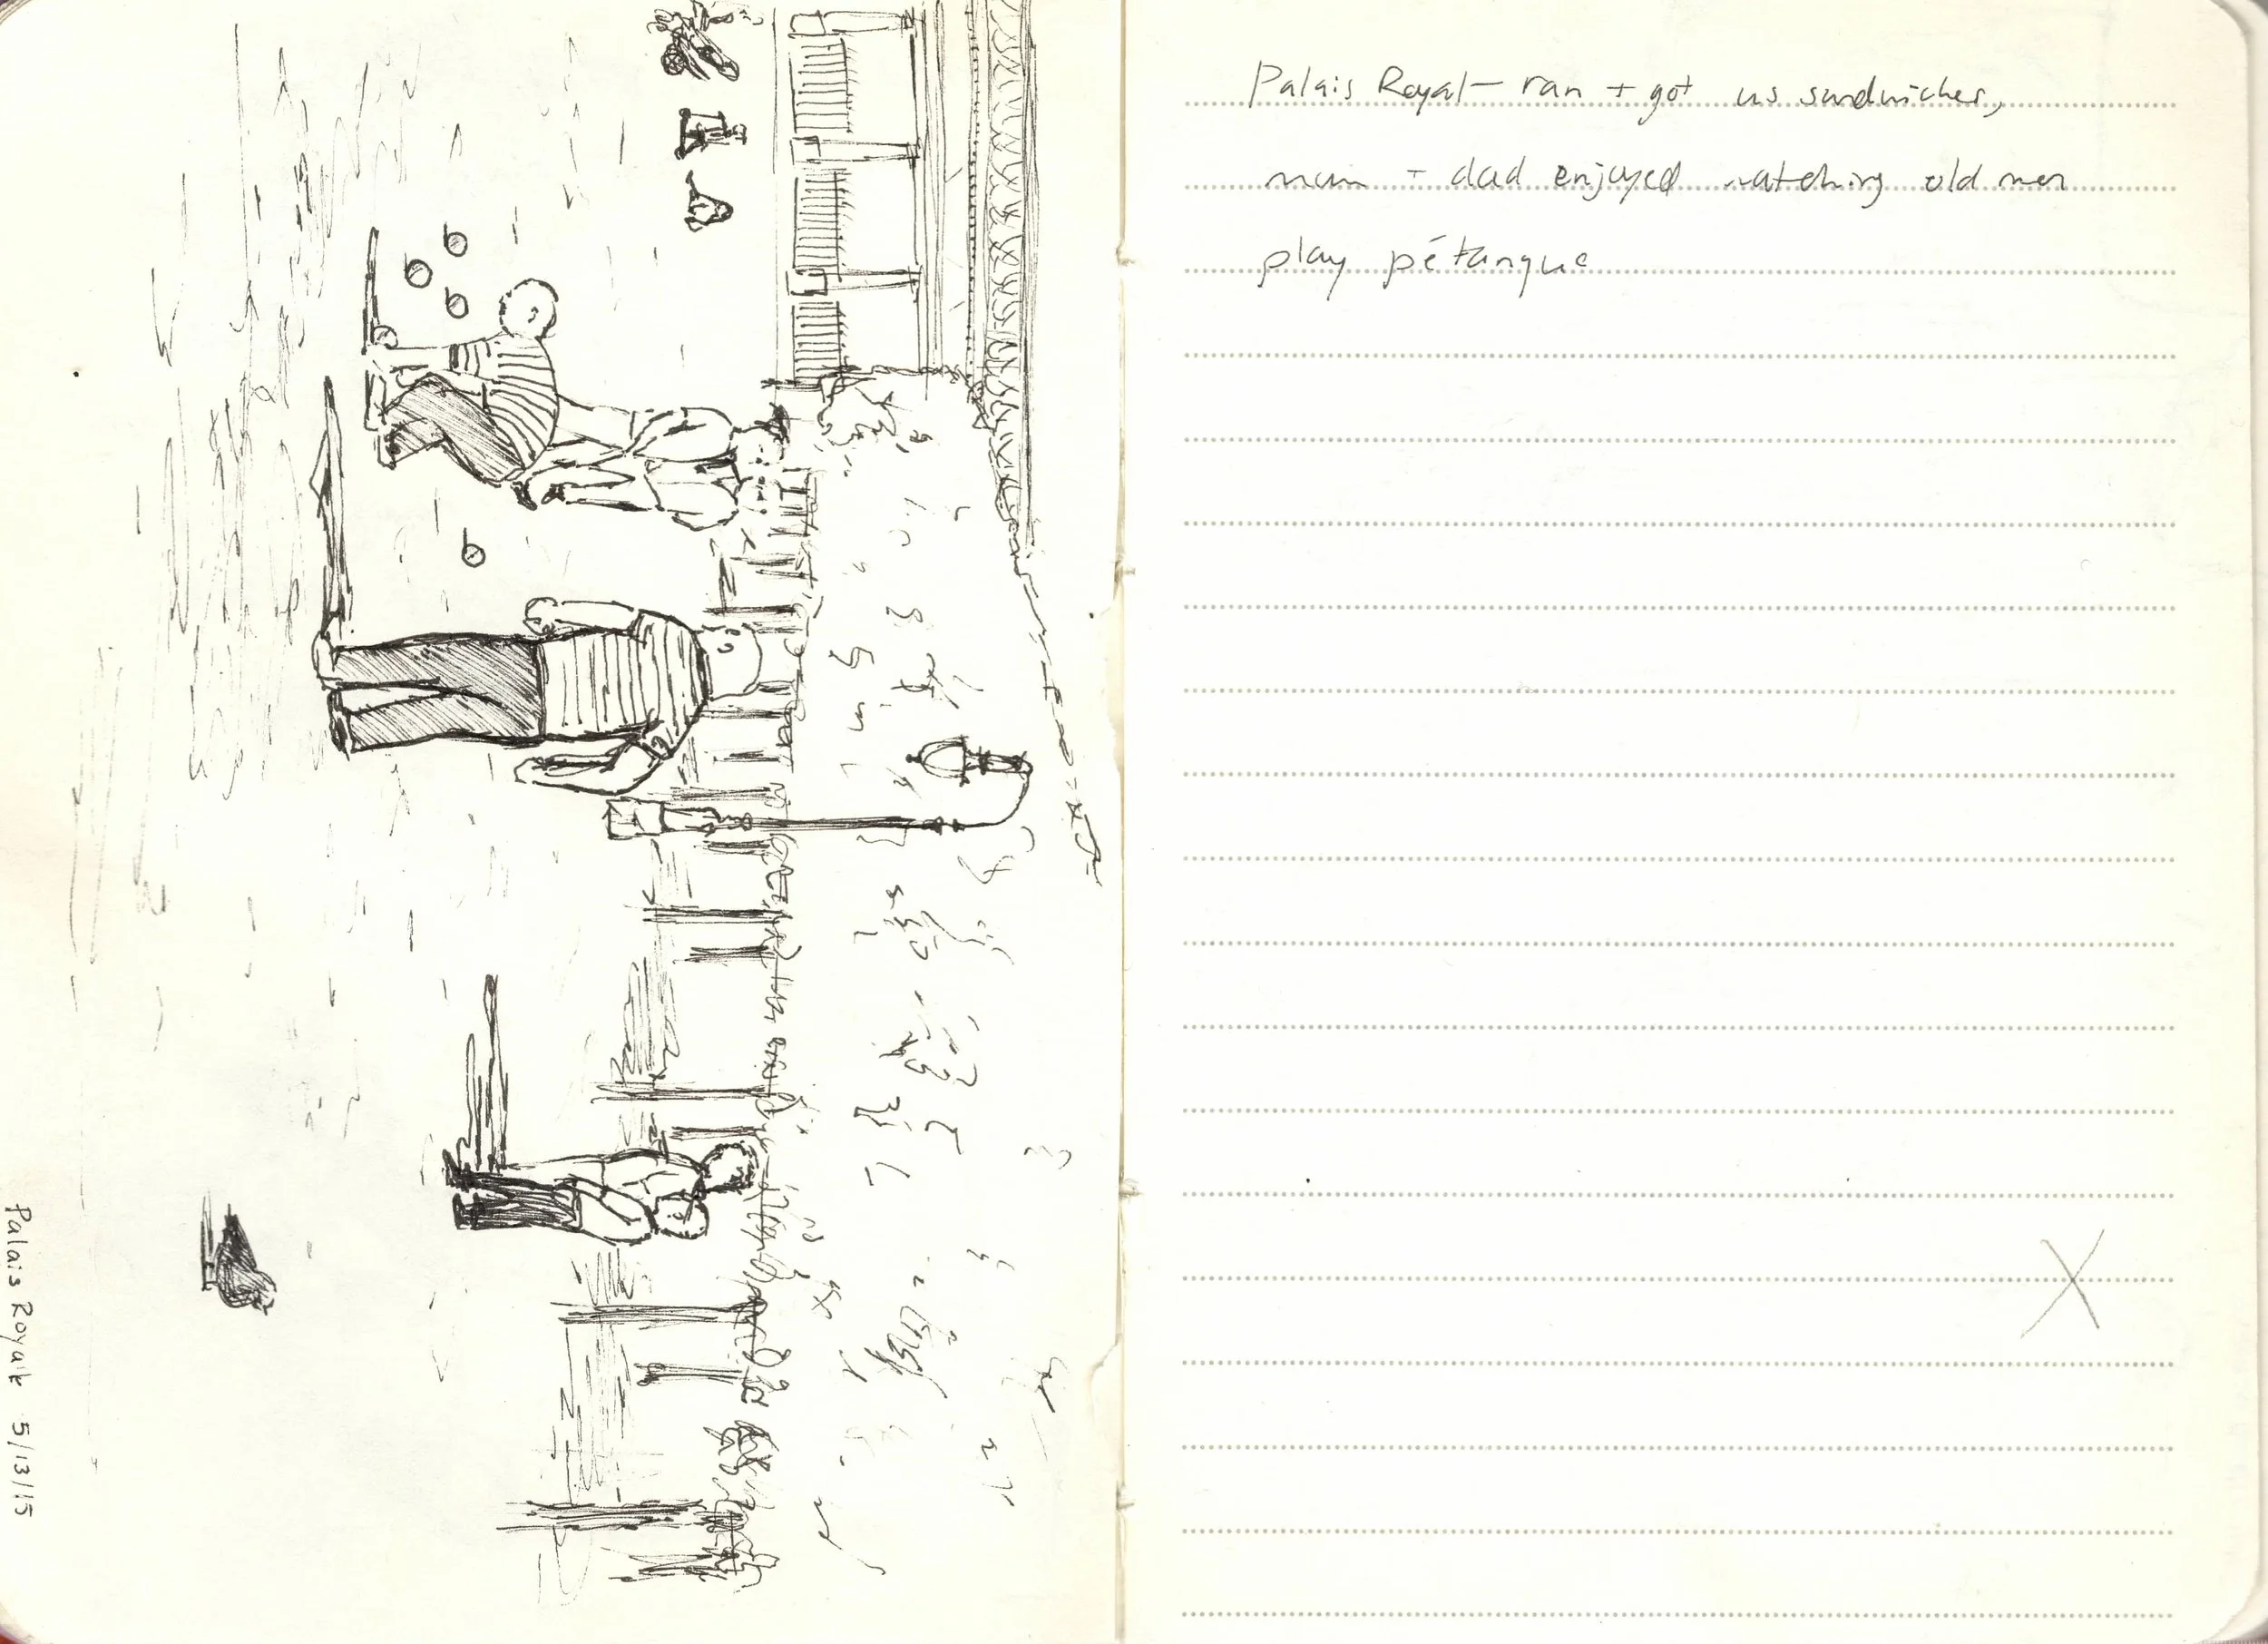 Palais Royal— ran + got us sandwiches,
mom + dad enjoyed watching old men
play pétanque
X
Palais Royale 5/13/15